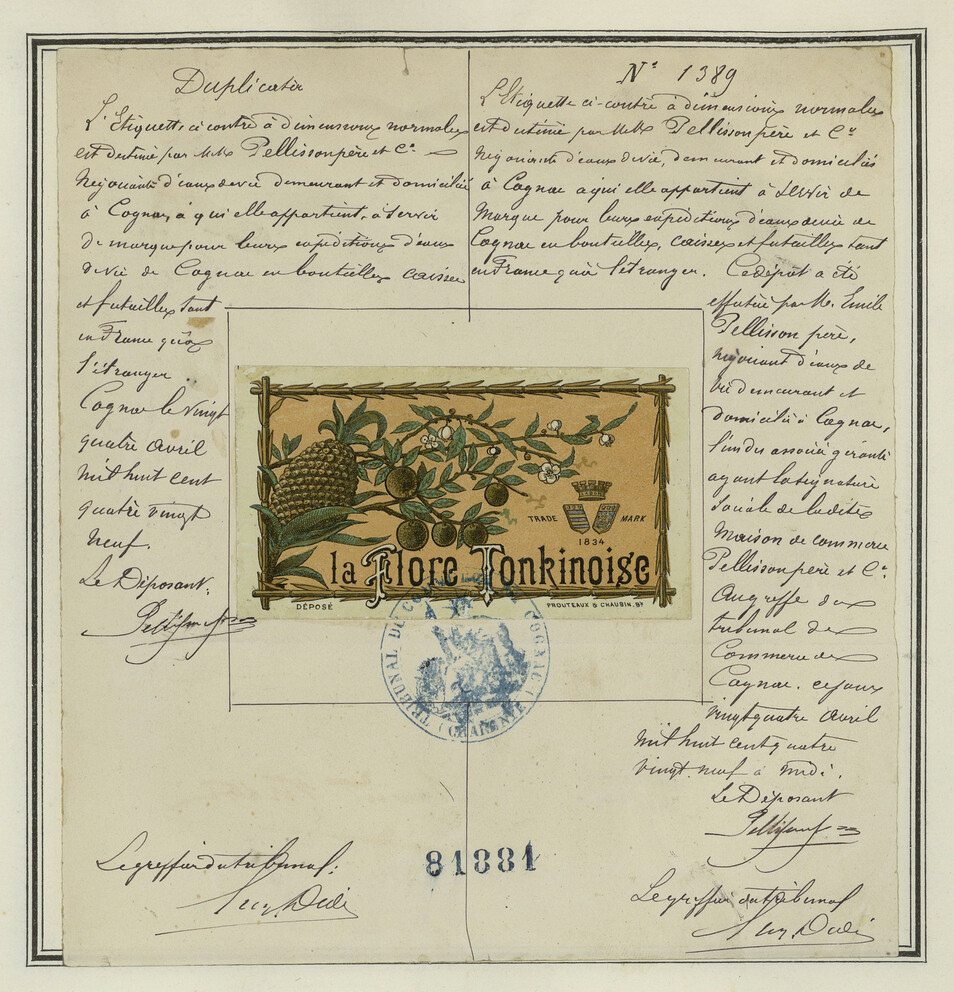 Duplicata
L'Etiquette ci-contre à dimensions normales
est destinée par MMrs Pellisson père et Cie
Négociants d'eaux de vie demeurant et domiciliés
à Cognac, à qui elle appartient, à servir
de marque pour leurs expéditions d'eaux
de vie de Cognac en bouteilles caisses
et futailles tant
en France qu'à
l'étranger.
Cognac le vingt
quatre avril
mil huit cent
quatre vingt
neuf.
Le Déposant,
Le greffier du tribunal:
N° 1389
L'Etiquette ci-contre à dimensions normales
est destinée par MMrs Pellisson père et Cie
Négociants d'eaux de vie, demeurant et domiciliés
à Cognac à qui elle appartient à servir de
Marque pour leurs expéditions d'eaux de vie de
Cognac en bouteilles, caisses et futailles tant
en France qu'à l'étranger. Ce dépôt a été
effectué par M. Emile
Pellisson père,
négociant d'eaux de
vie demeurant et
domicilié à Cognac,
l'un des associés gérants
ayant la signature
sociale de la dite
Maison de commerce
Pellisson père et Cie
Au greffe du
tribunal de
Commerce de
Cognac. ce jour
vingt quatre avril
mil huit cent quatre
vingt neuf à midi.
Le Déposant
Le greffier du tribunal
TRADE MARK
1834
la Flore Tonkinoise
DÉPOSÉ
PROUTEAUX & CHAUBIN, Bx
TRIBUNAL DE COMMERCE DE COGNAC
(CHARENTE)
81881